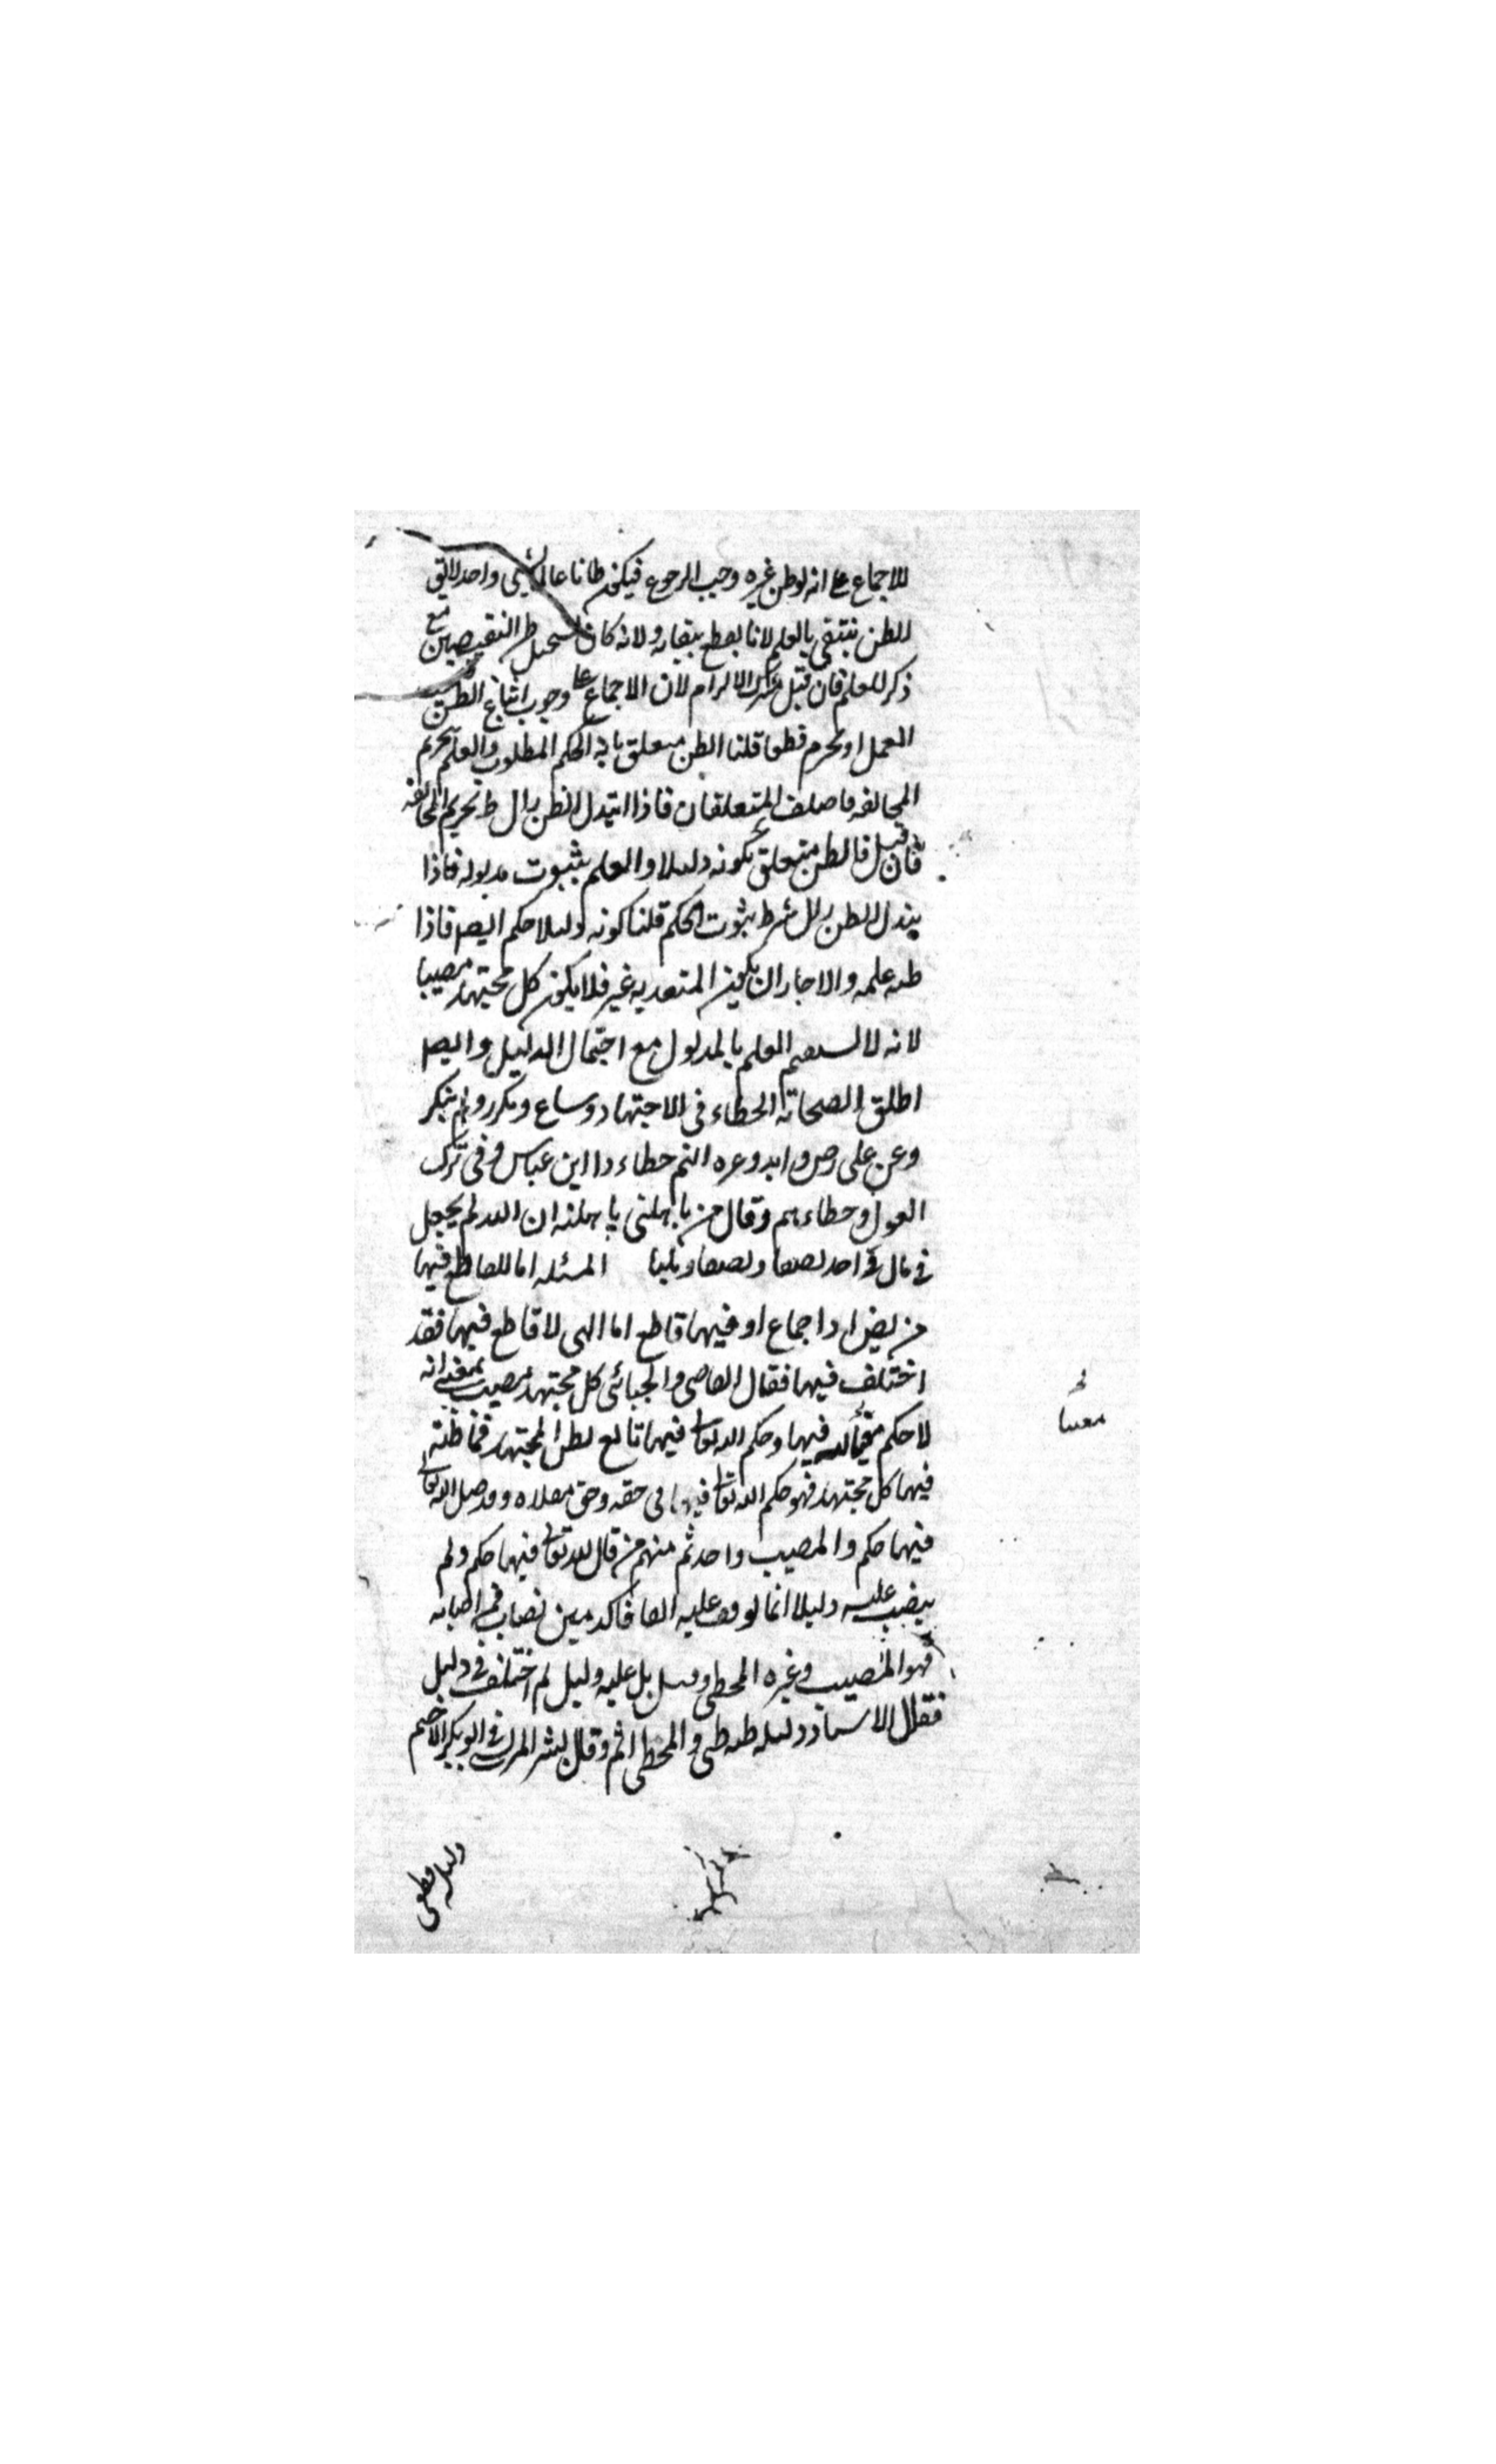 للاجماع على انه لو ظن غيره وجب الرجوع فيكون ظانا عالما بشيء واحد لا يق
الظن ينتفي بالعلم لانا نقطع ببقائه ولانه كان يستحيل ظن النقيضين مع
ذكر للعلم فان قيل مشترك الالزام لان الاجماع على وجوب اتباع الظن فيجب
العمل او يحرم قطعا قلنا الظن متعلق بانه الحكم المطلوب والعلم بتحريم
المخالفه فاختلف المتعلقان فاذا تبدل الظن زال شرط تحريم المخالفه
فان قيل فالظن متعلق بكونه دليلا والعلم بثبوت مدلوله فاذا
تبدل الظن زال شرط ثبوت الحكم قلنا كونه دليلا حكم ايضا فاذا
ظنه علمه والا جاز ان يكون المتعبد به غيره فلا يكون كل مجتهد مصيبا
لانه لا يستقيم العلم بالمدلول مع احتمال الدليل وايضا
اطلق الصحابة الخطاء في الاجتهاد وشاع وتكرر ولم ينكر
وعن علي وزيد وغيرهما انهم خطاءوا ابن عباس في ترك
العول وخطاءهم وقال من باهلني باهلته ان الله لم يجعل
في مال واحد نصفا ونصفا وثلثا المسئله اما القاطع فيها
من نص او اجماع او فيها قاطع اما التي لا قاطع فيها فقد
اختلف فيها فقال القاضي والجبائي كل مجتهد مصيب بمعنى انه
لا حكم معينا لله فيها وحكم الله تعالى فيها تابع لظن المجتهد فما ظنه
فيها كل مجتهد فهو حكم الله تعالى فيها في حقه وحق مقلده وقد قيل لله تعالى
فيها حكم والمصيب واحد ثم منهم من قال لله تعالى فيها حكم ولم
ينصب عليه دليلا انما لوقف عليه اتفاقا كدفين يصاب فمن اصابه
فهو المصيب وغيره المخطي وقيل بل عليه دليل ثم اختلف في دليل
فقال الاستاذ دليله ظني والمخطي اثم وقال بشر المريسي وابو بكر الاصم
دليله قطعي
معينا